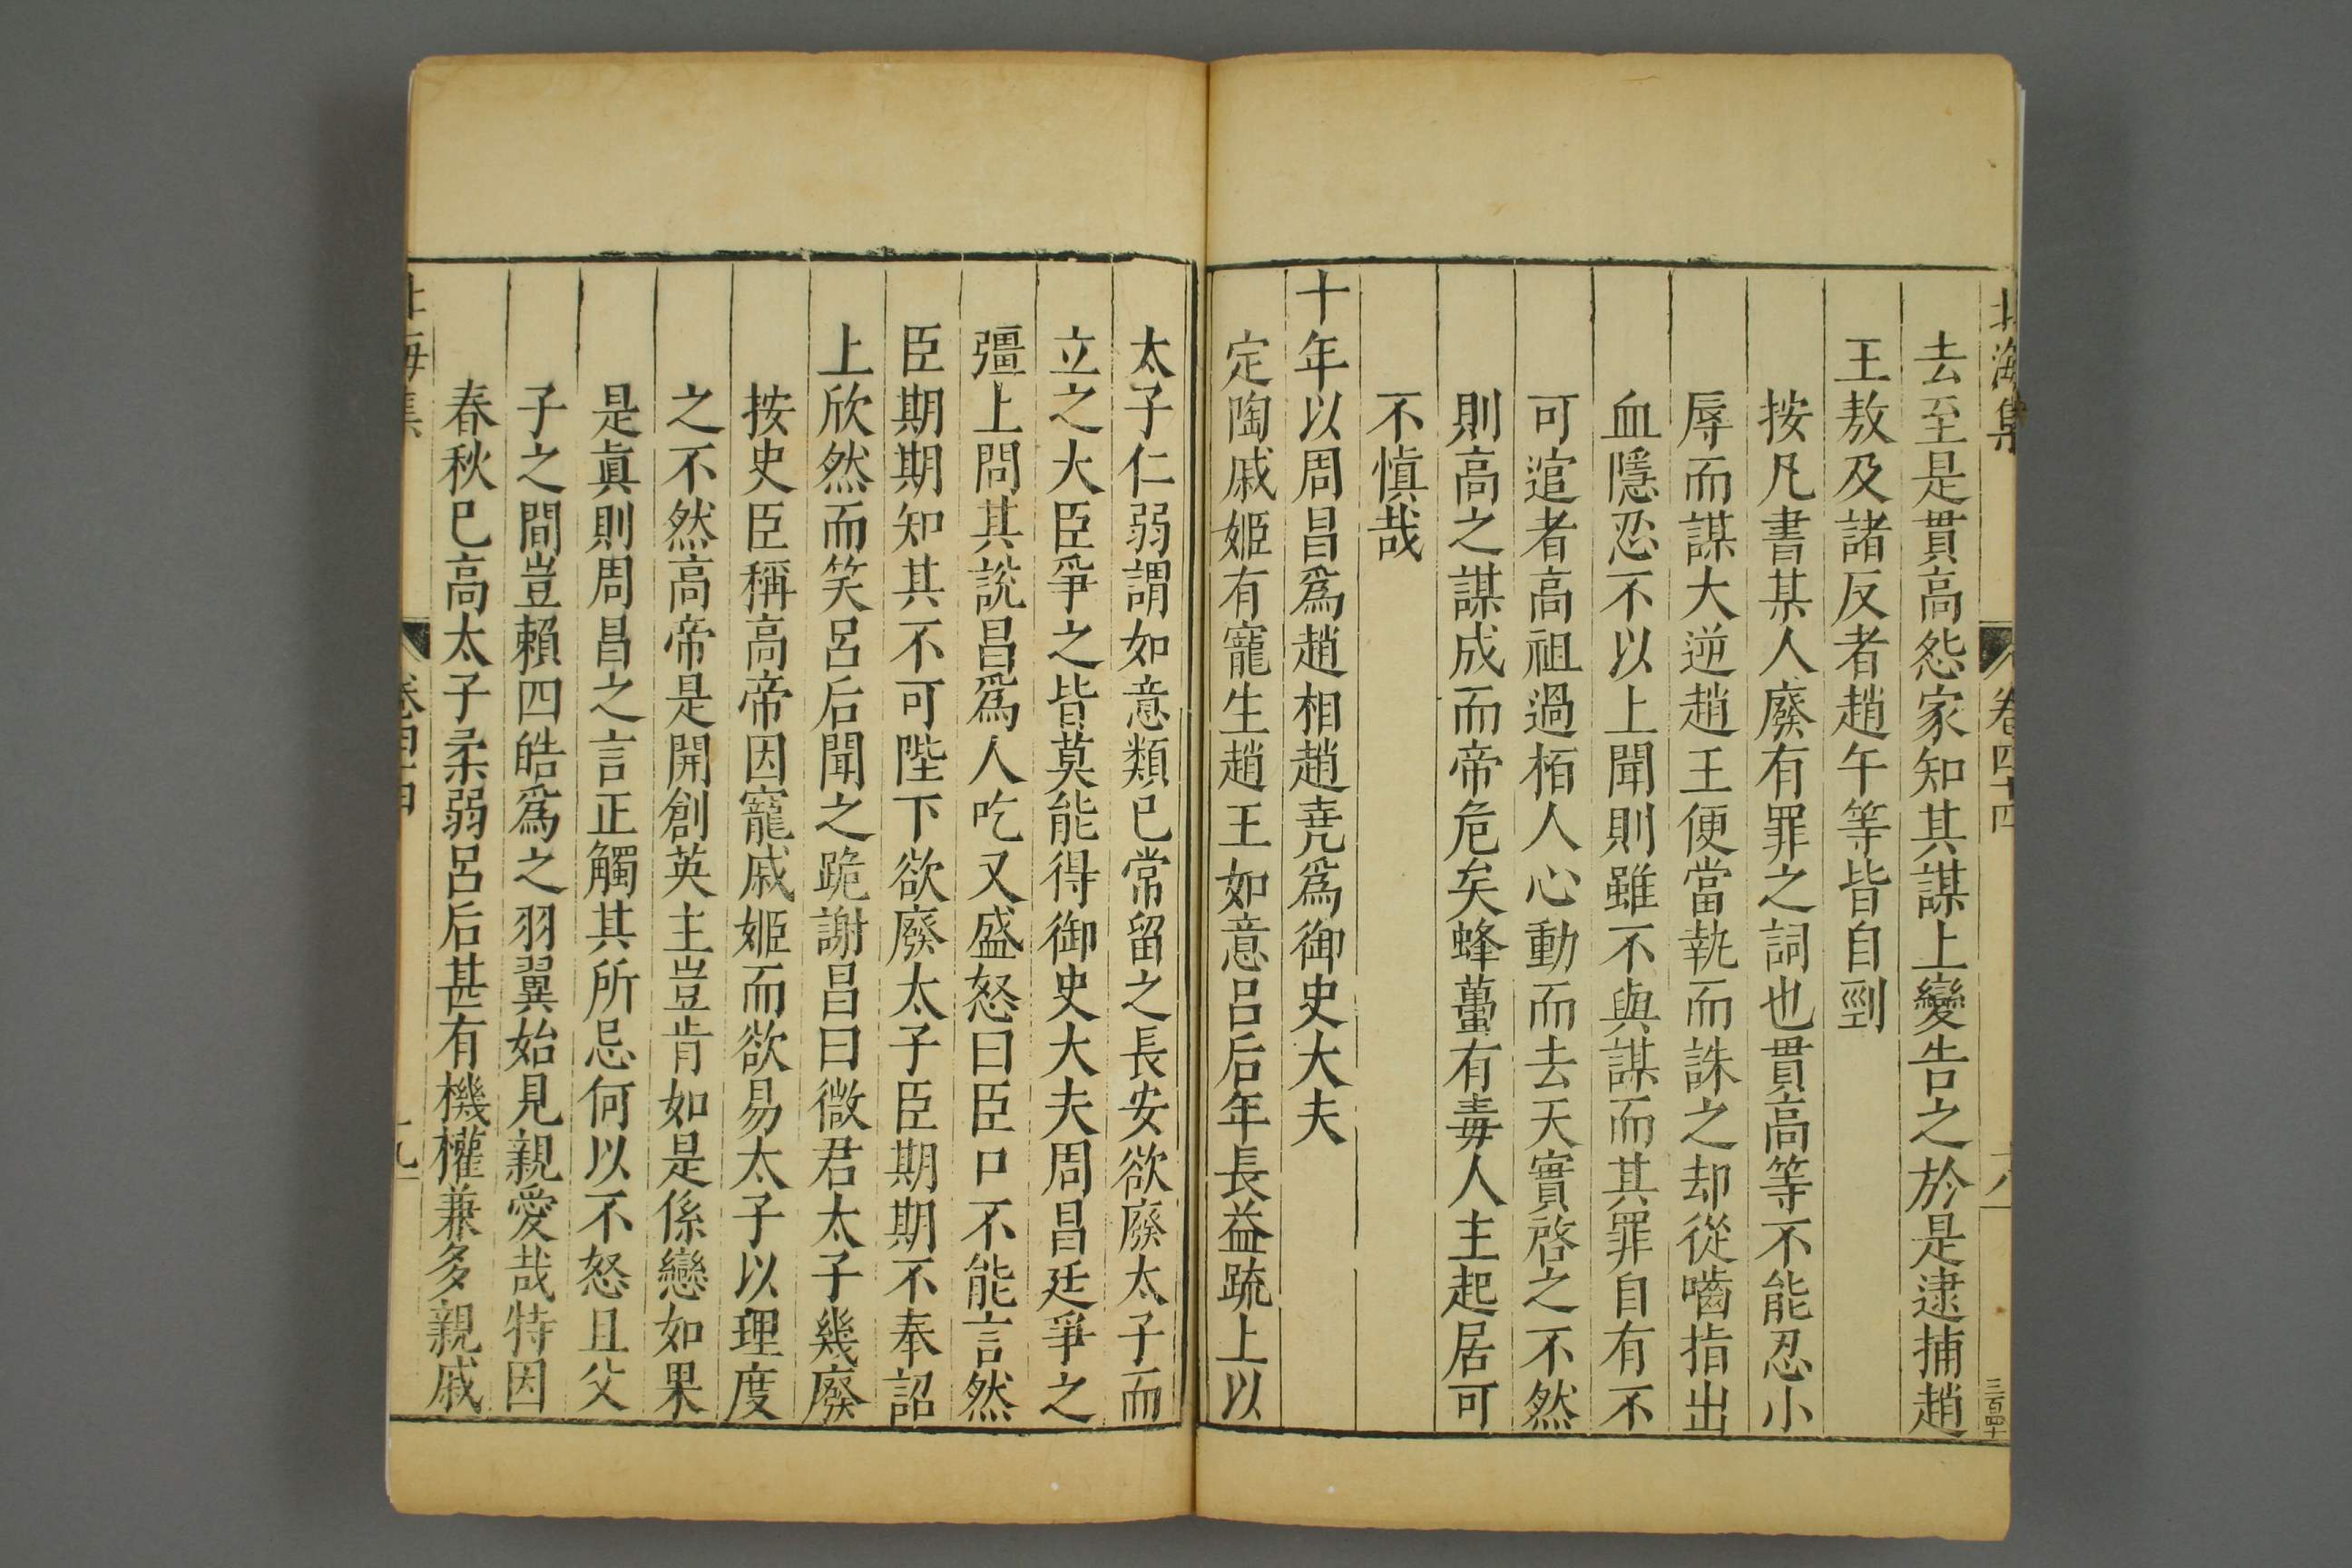 北海集 卷四十四 十八 三百四十
去至是貫高怨家知其謀上變告之於是逮捕趙
王敖及諸反者趙午等皆自剄
按凡書某人廢有罪之詞也貫高等不能忍小
辱而謀大逆趙王便當執而誅之却從嚙指出
血隱忍不以上聞則雖不與謀而其罪自有不
可逭者高祖過栢人心動而去天實啓之不然
則高之謀成而帝危矣蜂蠆有毒人主起居可
不慎哉
十年以周昌爲趙相趙堯爲御史大夫
定陶戚姬有寵生趙王如意呂后年長益疏上以
太子仁弱謂如意類已常留之長安欲廢太子而
立之大臣爭之皆莫能得御史大夫周昌廷爭之
彊上問其說昌爲人吃又盛怒曰臣口不能言然
臣期期知其不可陛下欲廢太子臣期期不奉詔
上欣然而笑呂后聞之跪謝昌曰微君太子幾廢
按史臣稱高帝因寵戚姬而欲易太子以理度
之不然高帝是開創英主豈肯如是係戀如果
是眞則周昌之言正觸其所忌何以不怒且父
子之間豈賴四皓爲之羽翼始見親愛哉特因
春秋已高太子柔弱呂后甚有機權兼多親戚
海集